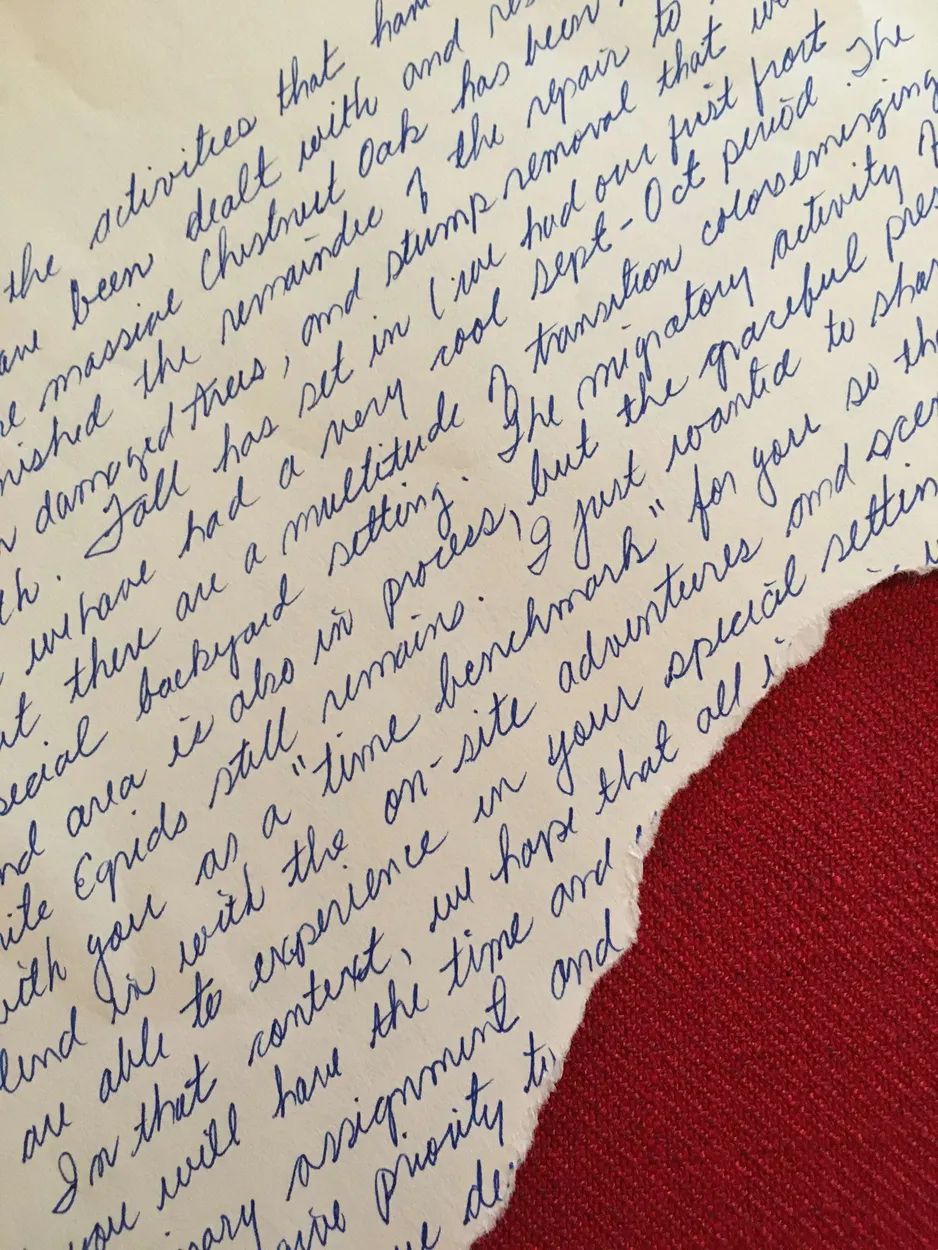 the activities that ha
ave been dealt with and res
re massive Chestnut Oak has been
nished the remainder of the repair to
n damaged trees, and stump removal that w
th. Fall has set in (we had our first frost
we have had a very cool Sept-Oct period. The
ut there are a multitude of transition colors emerging
pecial backyard setting. The migratory activity
nd area is also in process, but the graceful pres
ite Egrids still remains. I just wanted to shar
with you as a "time benchmark" for you so tha
lend in with the on-site adventures and scen
are able to experience in your special settin
In that context, we hope that all i
you will have the time and
mary assignment and
ive priority to
de